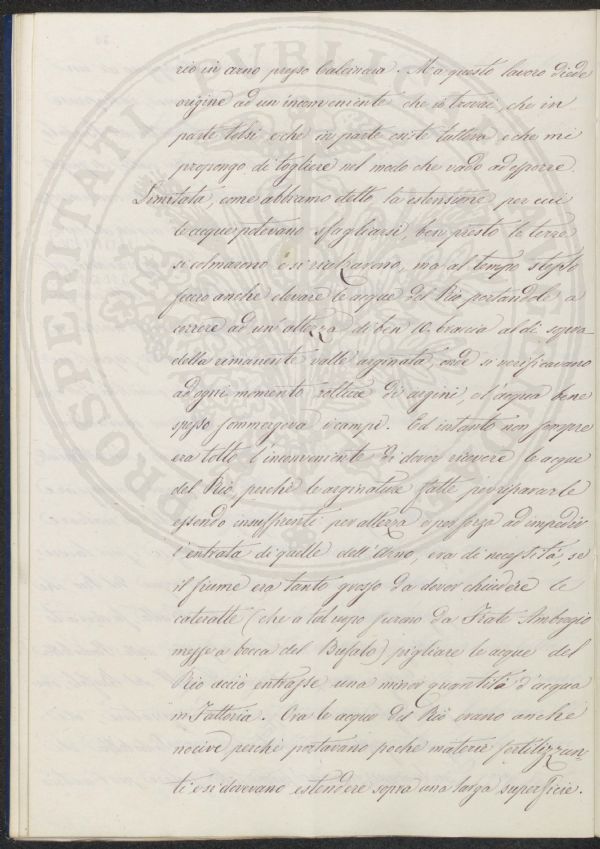 rio in arno presso Calcinaia. Ma questo lavoro diede
origine ad un inconveniente che io trovai, che in
parte tolsi e che in parte esiste tuttora e che mi
propongo di togliere nel modo che vado ad esporre.
Limitata, come abbiamo detto la estensione per cui
le acque potevano sfogliarsi, ben presto le terre
si colmarono e si rialzarono, ma al tempo stesso
fecero anche elevare le acque del Rio portandole a
correre ad un'altezza di ben 10 braccia al di sopra
della rimanente valle arginata, onde si verificavano
ad ogni momento rotture di argini, e l'acqua bene
spesso sommergeva i campi. Ed intanto non sempre
era tolto l'inconveniente di dover ricevere le acque
del Rio, perchè le arginature fatte per ripararle
essendo insufficenti per altezza e per forza ad impedir
l'entrata di quelle dell'Arno, era di necessità, se
il fiume era tanto grosso da dover chiudere le
cateratte (che a tal uopo furano da Frate Ambrogio
messe a bocca del Bufalo) pigliare le acque del
Rio acciò entrasse una minor quantità d'acqua
in Fattoria. Ora le acque del Rio erano anche
nocive perchè portavano poche materie fertilizzan-
ti e si dovevano estendere sopra una larga superficie.
PROSPERITATI PVBLICAE